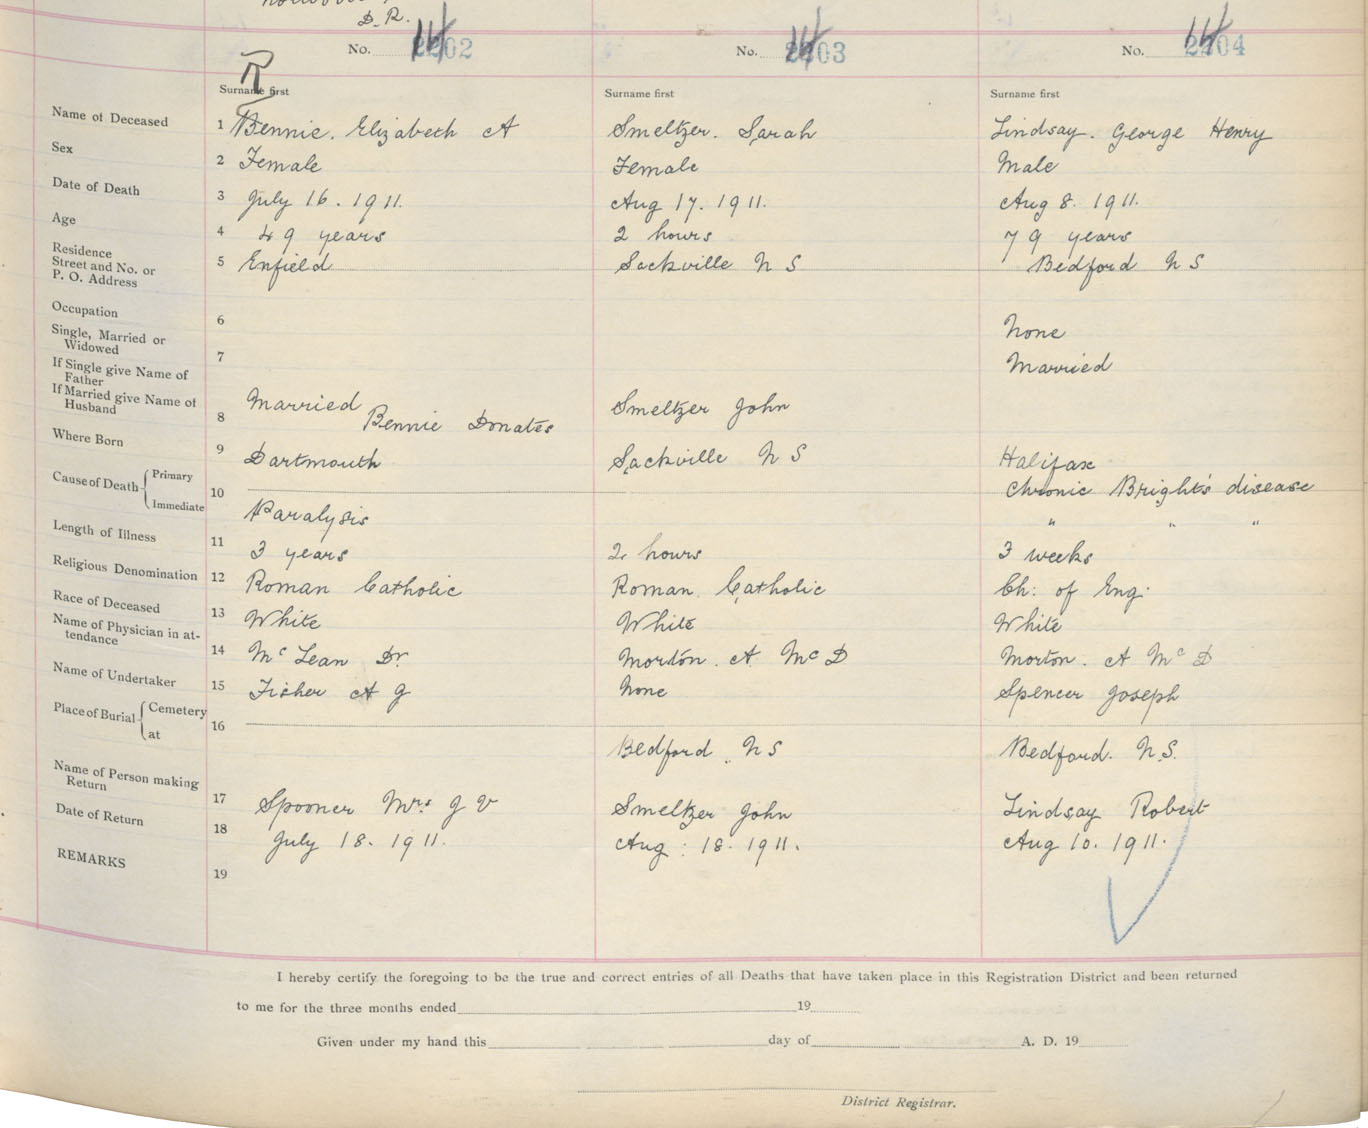 D. R.
No. 2202 No. 2203 No. 2204
R
Surname first Surname first Surname first
Name of Deceased 1 Bennie. Elizabeth A Smeltzer. Sarah Lindsay. George Henry
Sex 2 Female Female Male
Date of Death 3 July 16. 1911. Aug 17. 1911. Aug 8. 1911.
Age 4 49 years 2 hours 79 years
Residence
Street and No. or 5 Enfield Sackville N S Bedford N S
P. O. Address
Occupation 6 None
Single, Married or
Widowed 7 Married
If Single give Name of
Father
If Married give Name of Married Smeltzer John
Husband 8 Bennie Donates
Where Born 9 Dartmouth Sackville N S Halifax
Cause of Death Primary Chronic Bright's disease
Immediate 10 Paralysis " " "
Length of Illness 11 3 years 2 hours 3 weeks
Religious Denomination 12 Roman Catholic Roman Catholic Ch: of Eng.
Race of Deceased 13 White White White
Name of Physician in at-
tendance 14 Mc Lean Dr Morton. A. Mc D Morton. A Mc D
Name of Undertaker 15 Fisher A G None Spencer Joseph
Place of Burial Cemetery
at 16 Bedford. N S Bedford. N.S.
Name of Person making
Return 17 Spooner Mrs G V Smeltzer John Lindsay Robert
Date of Return 18 July 18. 1911. Aug: 18. 1911. Aug 10. 1911.
REMARKS 19
I hereby certify the foregoing to be the true and correct entries of all Deaths that have taken place in this Registration District and been returned
to me for the three months ended 19
Given under my hand this day of A. D. 19
District Registrar.